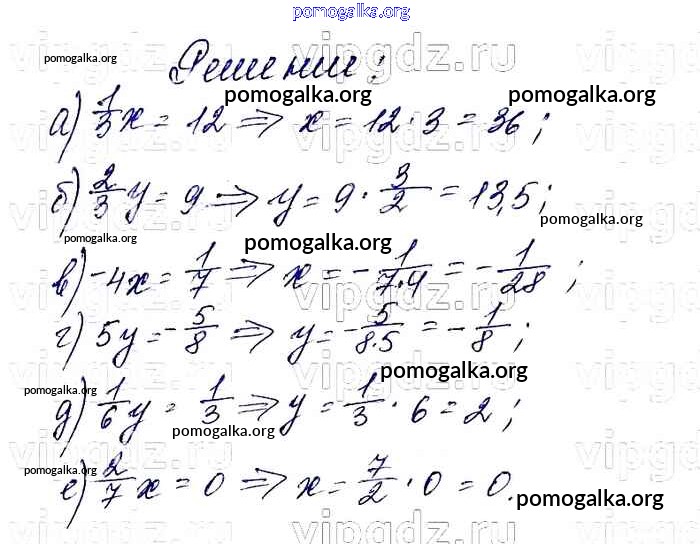 pomogalka.org
Решение:
pomogalka.org
а) 1/3 x = 12 => x = 12 · 3 = 36;
pomogalka.org pomogalka.org
б) 2/3 y = 9 => y = 9 · 3/2 = 13,5;
pomogalka.org
pomogalka.org pomogalka.org
в) -4x = 1/7 => x = - 1/7·4 = - 1/28;
г) 5y = - 5/8 => y = - 5/8·5 = - 1/8;
pomogalka.org
pomogalka.org
д) 1/6 y = 1/3 => y = 1/3 · 6 = 2;
pomogalka.org
pomogalka.org
е) 2/7 x = 0 => x = 7/2 · 0 = 0.
pomogalka.org
vipgdz.ru